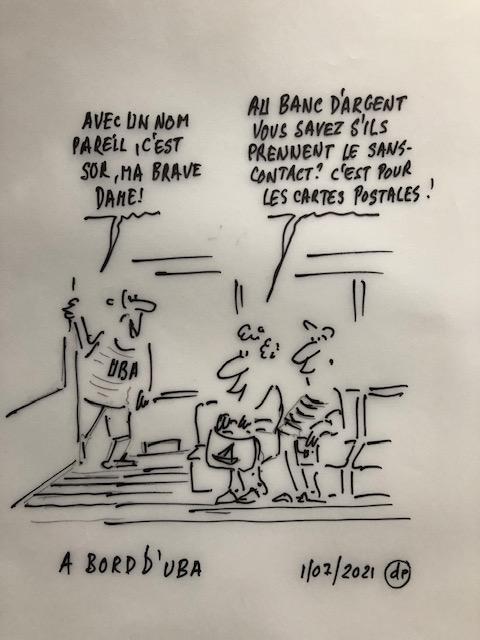 AU BANC D'ARGENT
VOUS SAVEZ S'ILS
PRENNENT LE SANS-
CONTACT? C'EST POUR
LES CARTES POSTALES!
AVEC UN NOM
PAREIL, C'EST
SÛR, MA BRAVE
DAME!
UBA
A BORD D'UBA
1/07/2021 dp